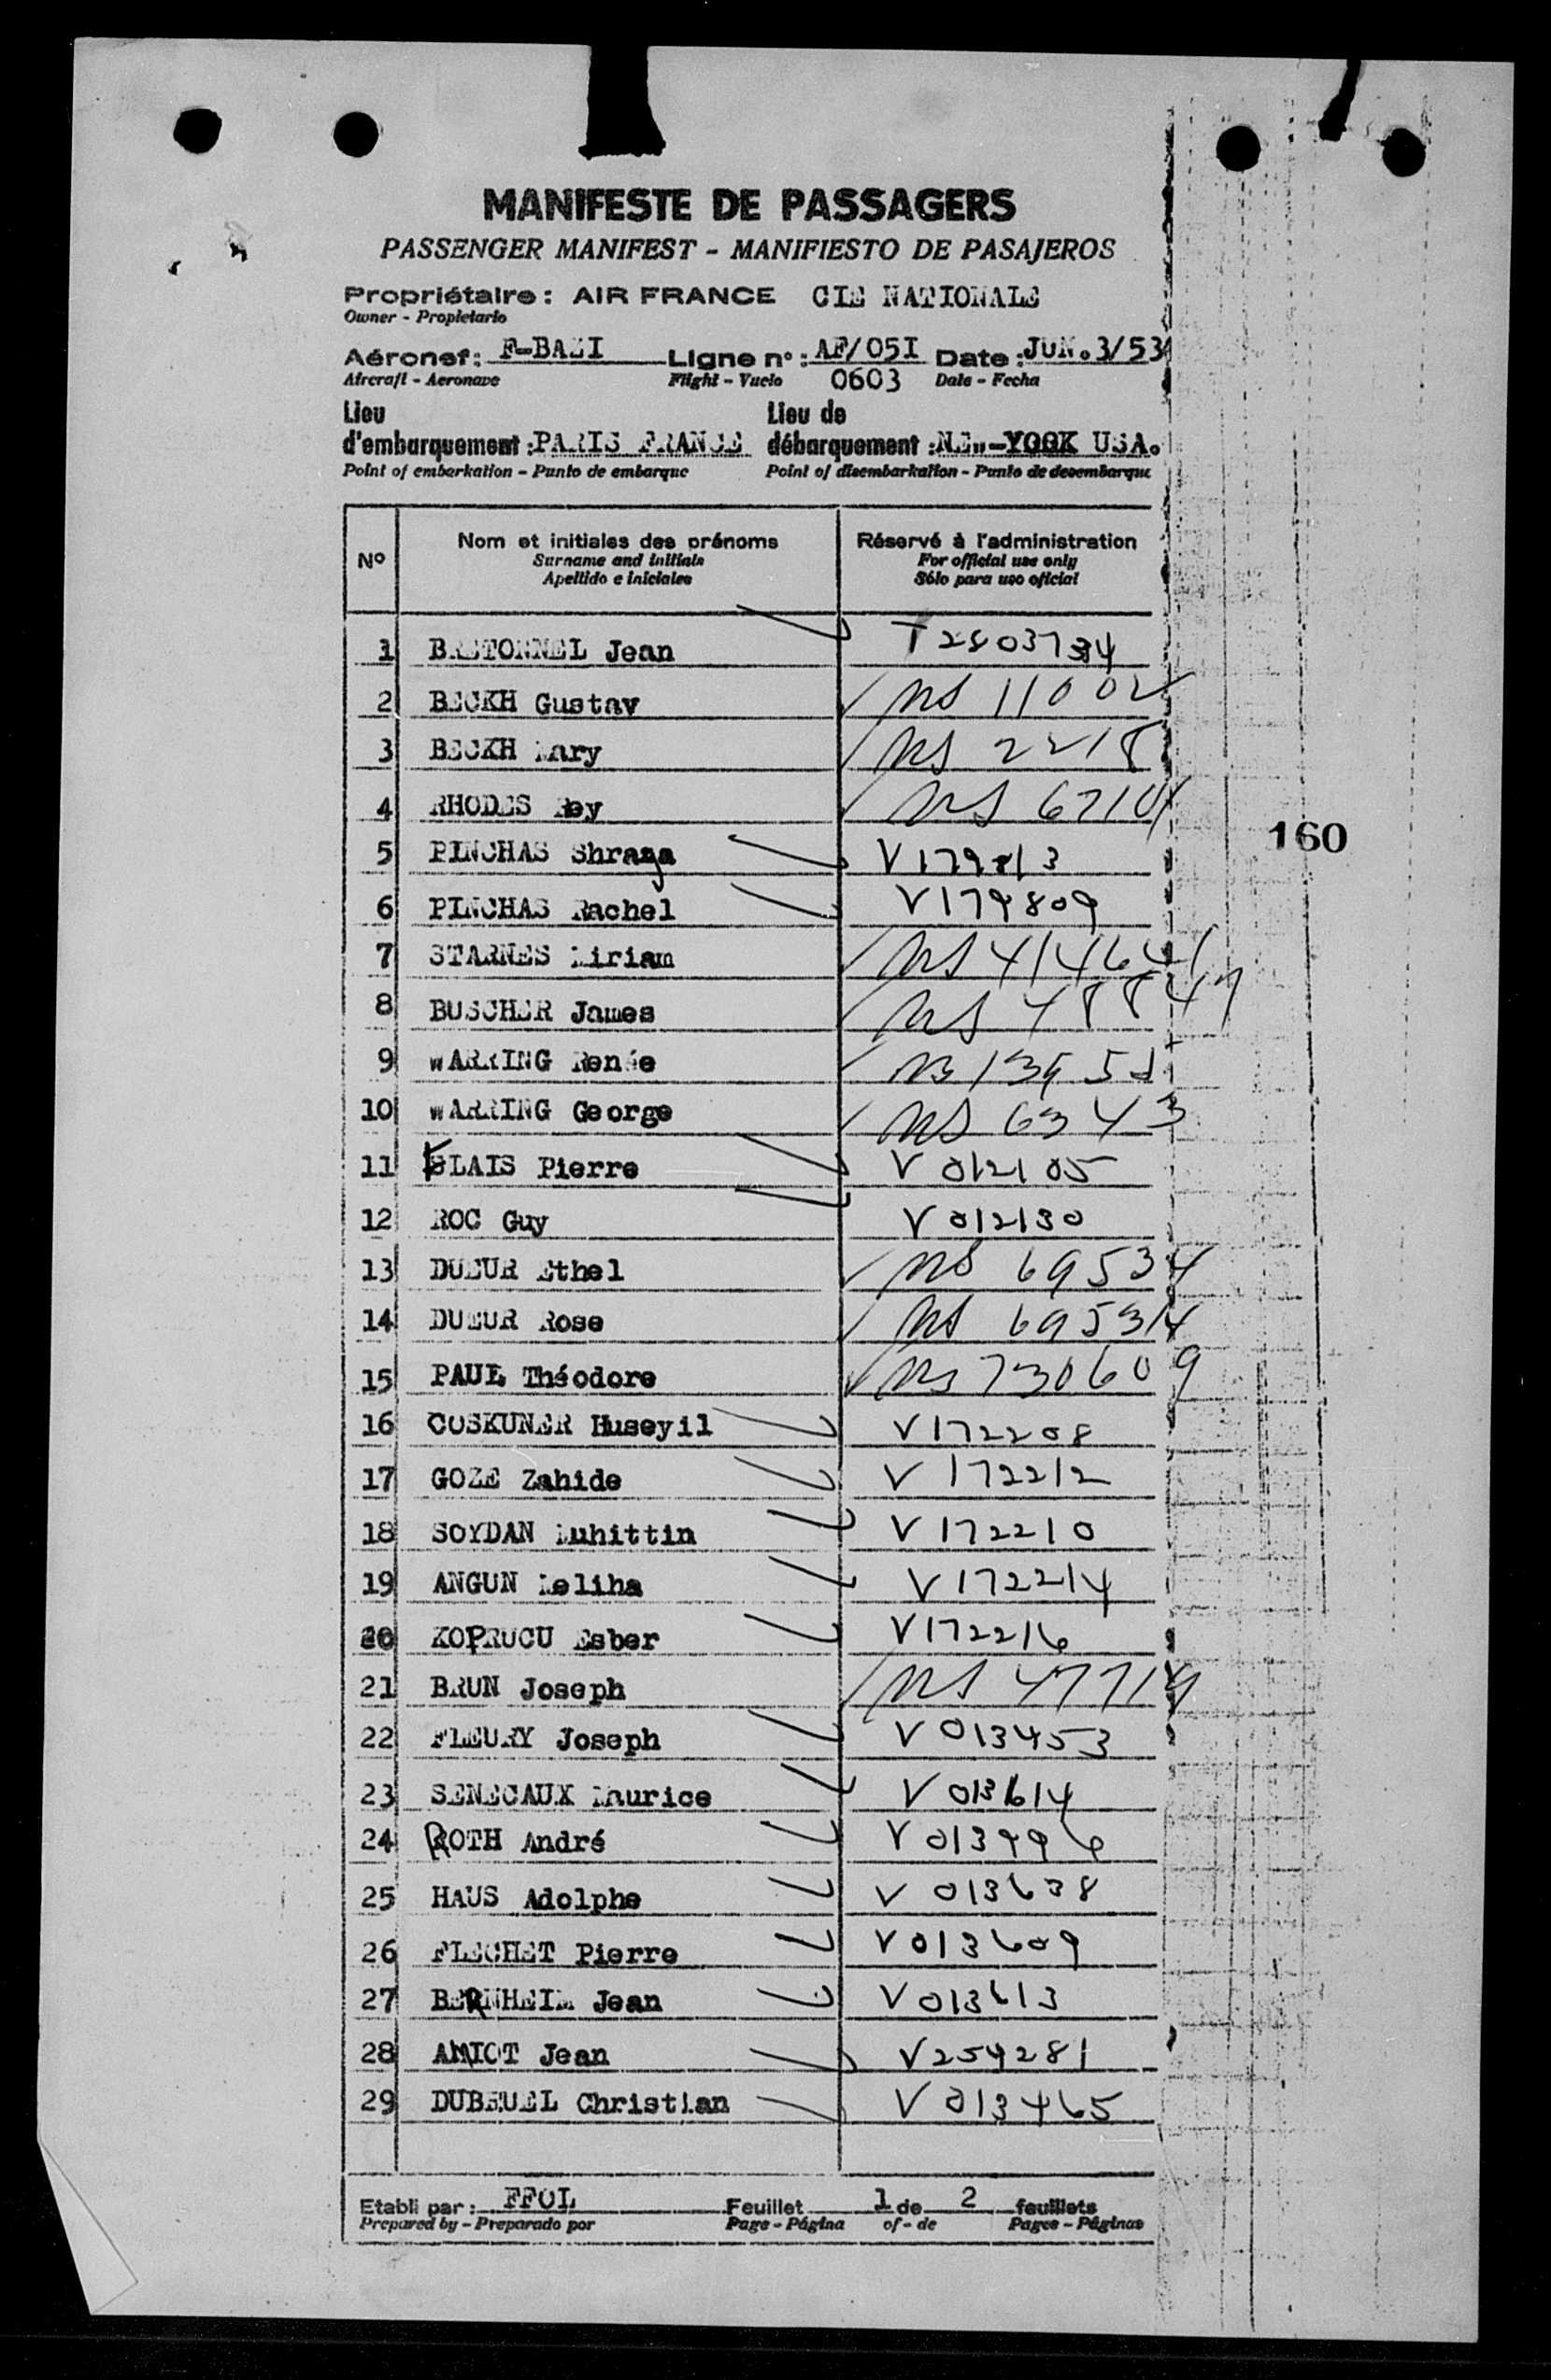 MANIFESTE DE PASSAGERS
PASSENGER MANIFEST - MANIFIESTO DE PASAJEROS
Propriétaire : AIR FRANCE CIE NATIONALE
Owner - Propietario
Aéronef : F-BAZI Ligne n° : AF/05I Date : JUN.3/53
Aircraft - Aeronave Flight - Vuelo 0603 Date - Fecha
Lieu Lieu de
d'embarquement : PARIS FRANCE débarquement : NEW-YOOK USA.
Point of embarkation - Punto de embarque Point of disembarkation - Punto de desembarque
N° Nom et initiales des prénoms Réservé à l'administration
Surname and initials For official use only
Apellido e iniciales Sólo para uso oficial
1 BRETONNEL Jean T 2803734
2 BECKH Gustav NS 11002
3 BECKH Mary NS 2218
4 RHODES Rey NS 67104
5 PINCHAS Shraga V179813
160
6 PINCHAS Rachel V179809
7 STARNES Miriam NS 414641
8 BUSCHER James NS 48847
9 WARRING Renée
10 WARRING George NS 6343
11 BLAIS Pierre V 012105
12 ROC Guy V 012130
13 DUEUR Ethel NS 69534
14 DUEUR Rose NS 69534
15 PAUL Théodore NS 730609
16 COSKUNER Huseyil V172208
17 GOZE Zahide V 172212
18 SOYDAN Muhittin V 172210
19 ANGUN Meliha V 172214
20 KOPRUCU Esber V172216
21 BRUN Joseph NS 47714
22 FLEURY Joseph V 013453
23 SENECAUX Maurice V 013614
24 ROTH André V 013996
25 HAUS Adolphe V 013638
26 FLECHET Pierre V 013609
27 BERNHEIM Jean V 013613
28 AMIOT Jean V254281
29 DUBRUEL Christian V 013465
Etabli par : FFOL Feuillet 1 de 2 feuillets
Prepared by - Preparado por Page - Página of - de Pages - Páginas